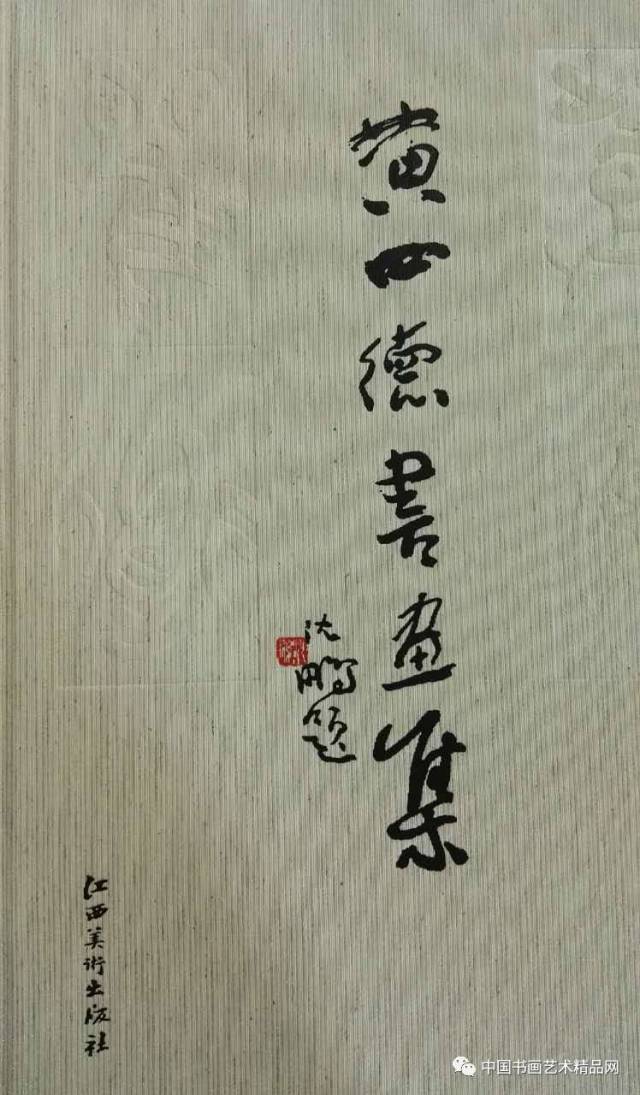 黄四德書画集
沈鹏题
江西美術出版社
中国书画艺术精品网